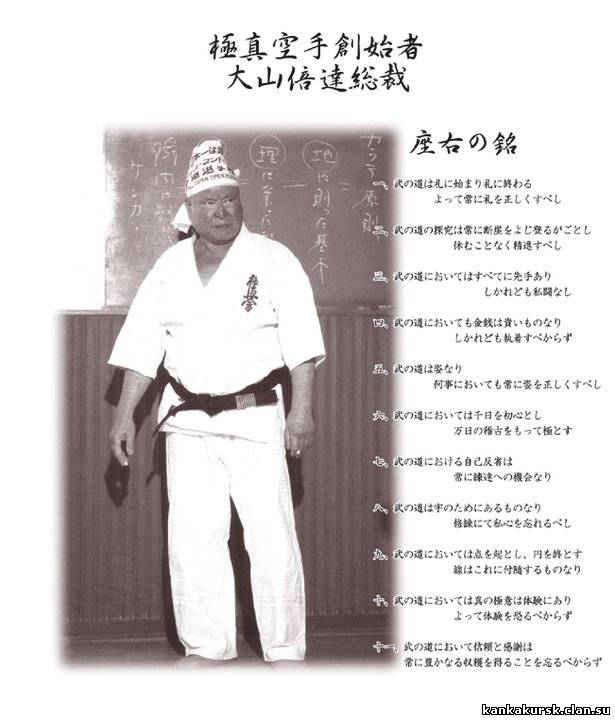 極真空手創始者
大山倍達総裁
座右の銘
カラテ原則
地に則った基本
理に
ケンカ
JAPAN OPEN
極真会
一、武の道は礼に始まり礼に終わる
よって常に礼を正しくすべし
二、武の道の探究は常に断崖をよじ登るがごとし
休むことなく精進すべし
三、武の道においてはすべてに先手あり
しかれども私闘なし
四、武の道においても金銭は貴いものなり
しかれども執着すべからず
五、武の道は姿なり
何事においても常に姿を正しくすべし
六、武の道においては千日を初心とし
万日の稽古をもって極とす
七、武の道における自己反省は
常に練達への機会なり
八、武の道は のためにあるものなり
修錬にて私心を忘れるべし
九、武の道においては点を起とし、円を終とす
線はこれに付随するものなり
十、武の道においては真の極意は体験にあり
よって体験を恐るべからず
十一、武の道において信頼と感謝は
常に豊かなる収穫を得ることを忘るべからず
kankakursk.clan.su